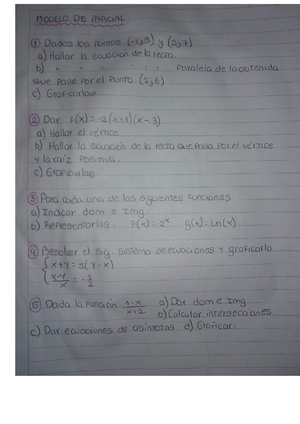 MODELO DE PARCIAL
① Dados los puntos (-1,9) y (5,7)
a) Hallar la ecuación de la recta.
b) " " " " " Paralela de la obtenida
que pase por el punto (2,6)
c) Graficarlas.
② Dar F(x)=-2(x+1)(x-3)
a) Hallar el vértice
b) Hallar la ecuación de la recta que pasa por el vértice
y la raíz positiva.
c) Graficarlas
③ Para cada una de las siguientes funciones
a) Indicar dom e Img.
b) Representarlas. F(x)=2ˣ g(x)=Ln(x).
④ Resolver el sig. sistema de ecuaciones y graficarlo
x+y=3(y-x)
⑤ Dada la función x+2 a) Dar dom e Img
b) Calcular intersecciones
c) Dar ecuaciones de asíntotas. d) Graficar.